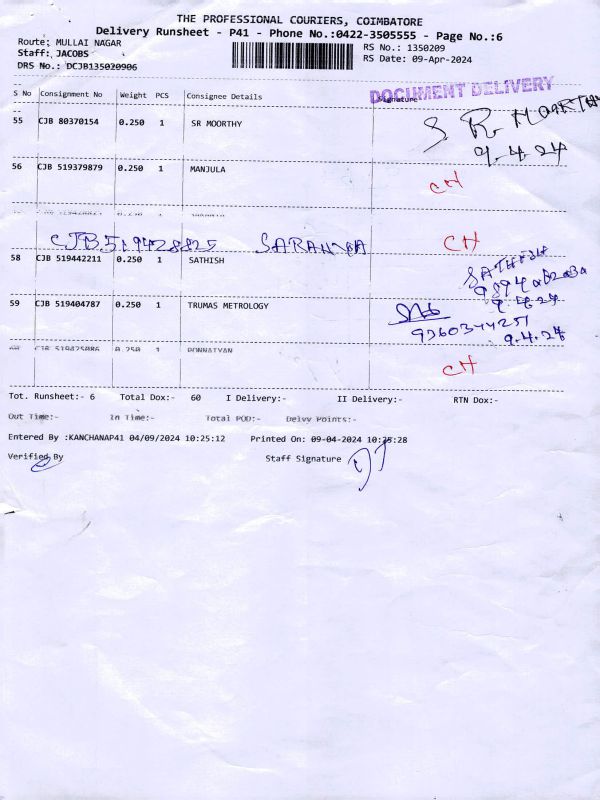 THE PROFESSIONAL COURIERS, COIMBATORE
Delivery Runsheet - P41 - Phone No.:0422-3505555 - Page No.:6
Route: MULLAI NAGAR
Staff: JACOBS
RS No.: 1350209
DRS No.: DCJB135020906
RS Date: 09-Apr-2024
DOCUMENT DELIVERY
S No Consignment No Weight PCS Consignee Details Signature
55 CJB 80370154 0.250 1 SR MOORTHY
S.R. MOORTHY
9.4.24
56 CJB 519379879 0.250 1 MANJULA
CH
CJB.519428825 SARANYA CH
58 CJB 519442211 0.250 1 SATHISH
SATHISH
9.4.24
59 CJB 519404787 0.250 1 TRUMAS METROLOGY
9.4.24
60 CJB 519425086 0.250 1
CH
Tot. Runsheet:- 6 Total Dox:- 60 I Delivery:- II Delivery:- RTN Dox:-
Out Time:- In Time:- Total POD:- Delvy Points:-
Entered By :KANCHANAP41 04/09/2024 10:25:12 Printed On: 09-04-2024 10:25:28
Verified By Staff Signature